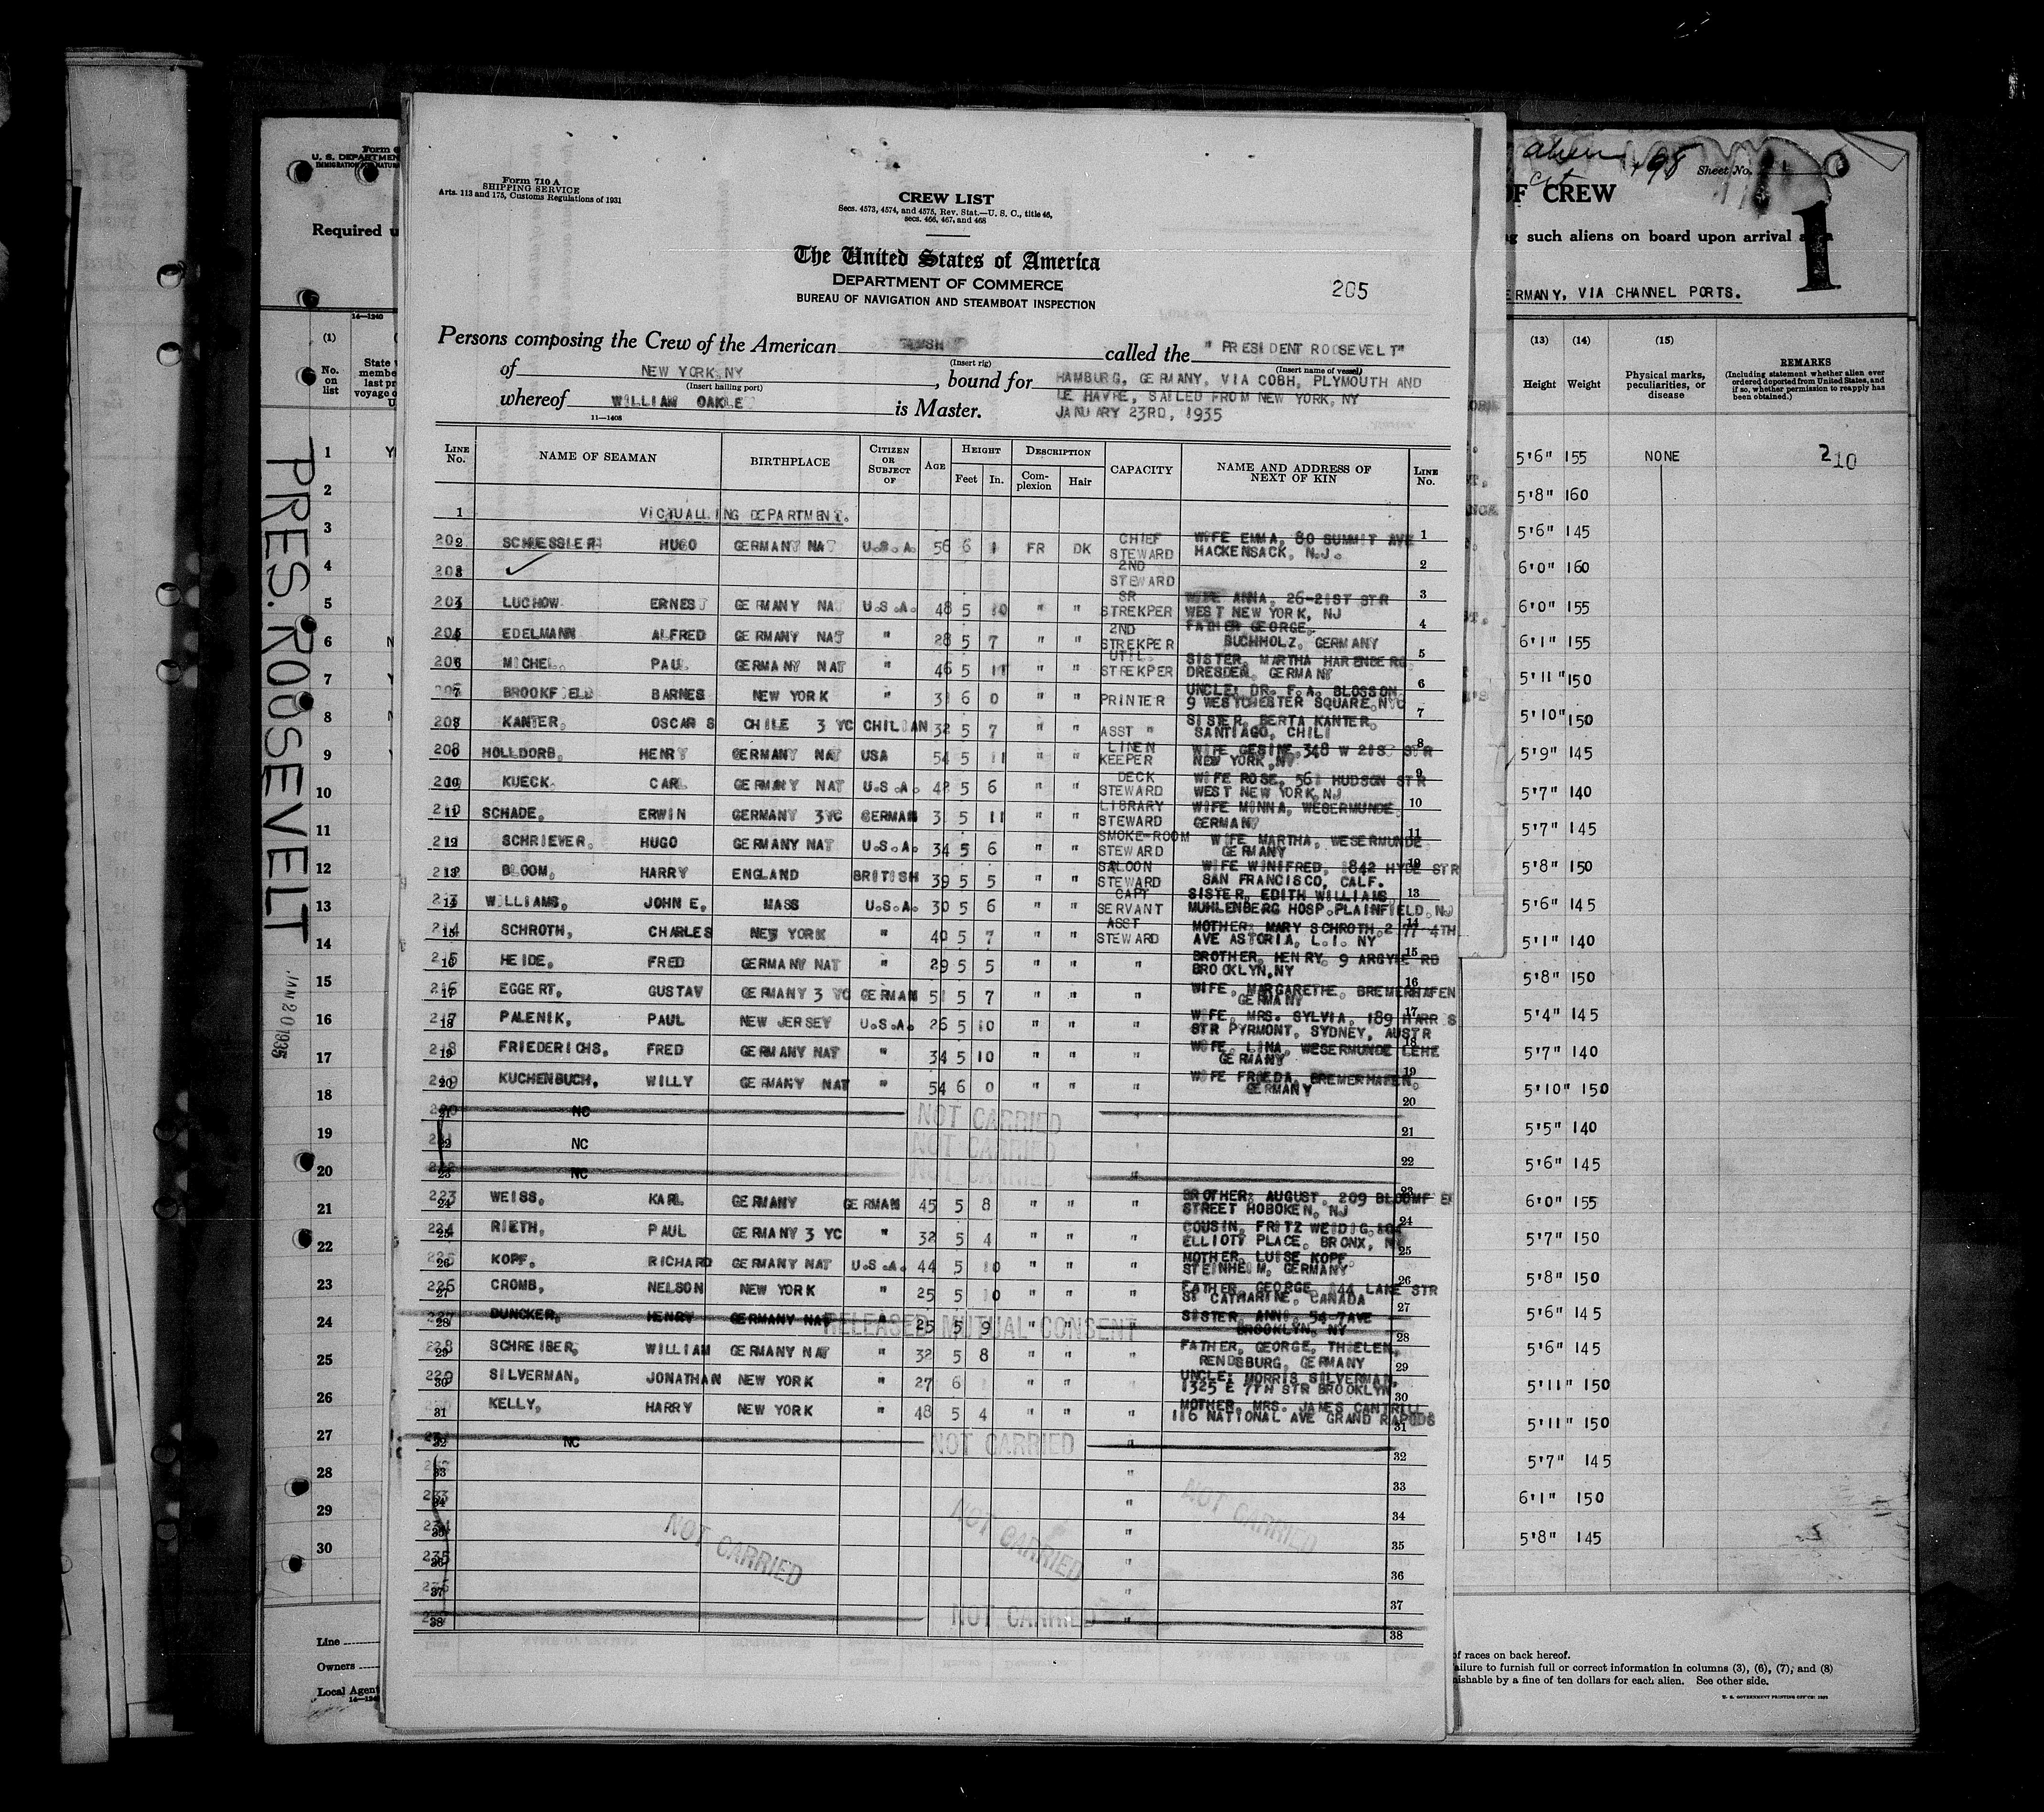 Form 710 A
SHIPPING SERVICE
Arts. 113 and 175, Customs Regulations of 1931
CREW LIST
Secs. 4573, 4574, and 4575, Rev. Stat.—U. S. C., title 46,
secs. 466, 467, and 468
The United States of America
DEPARTMENT OF COMMERCE
BUREAU OF NAVIGATION AND STEAMBOAT INSPECTION
205
Persons composing the Crew of the American called the "PRESIDENT ROOSEVELT"
(Insert rig) (Insert name of vessel)
of NEW YORK, NY, bound for HAMBURG, GERMANY, VIA COBH, PLYMOUTH AND
(Insert hailing port)
LE HAVRE, SAILED FROM NEW YORK, NY
whereof WILLIAM OAKLE is Master. JANUARY 23RD, 1935
11—1408
LINE No. NAME OF SEAMAN BIRTHPLACE CITIZEN OR SUBJECT OF AGE HEIGHT Feet In. DESCRIPTION Complexion Hair CAPACITY NAME AND ADDRESS OF NEXT OF KIN LINE No.
1 VICTUALLING DEPARTMENT. 1
202 SCHUESSLER HUGO GERMANY NAT U.S.A. 56 6 1 FR DK CHIEF STEWARD WIFE EMMA, 80 SUMMIT AVE HACKENSACK, N.J. 2
2ND STEWARD 3
LUCHOW ERNEST GERMANY NAT U.S.A. 48 5 10 " " SR STREKPER WIFE ANNA, 26-21ST STR WEST NEW YORK, NJ 4
EDELMANN ALFRED GERMANY NAT " 28 5 7 " " 2ND STREKPER FATHER GEORGE, BUCHHOLZ, GERMANY 5
MICHEL, PAUL GERMANY NAT " 46 5 11 " " UTIL. STREKPER SISTER, MARTHA HARENBERG, DRESDEN, GERMANY 6
BROOKFIELD BARNES NEW YORK " 31 6 0 " " PRINTER UNCLE: DR. F.A. BLOSSON, 9 WESTCHESTER SQUARE, NYC 7
KANTER, OSCAR S CHILE 3 YC CHILIAN 32 5 7 " " ASST " SISTER, BERTA KANTER, SANTIAGO, CHILI 8
HOLLDORB, HENRY GERMANY NAT USA 54 5 11 " " LINEN KEEPER WIFE GESINE, 348 W 21ST STR NEW YORK, NY 9
KUECK, CARL GERMANY NAT U.S.A. 42 5 6 " " DECK STEWARD WIFE ROSE, 561 HUDSON STR WEST NEW YORK, NJ 10
SCHADE, ERWIN GERMANY 3YC GERMAN 31 5 11 " " LIBRARY STEWARD WIFE MINNA, WESERMUNDE, GERMANY 11
SCHRIEVER, HUGO GERMANY NAT U.S.A. 34 5 6 " " SMOKE-ROOM STEWARD WIFE MARTHA, WESERMUNDE GERMANY 12
BLOOM, HARRY ENGLAND BRITISH 39 5 5 " " SALOON STEWARD WIFE WINIFRED, 1842 HYDE STR SAN FRANCISCO, CALF. 13
WILLIAMS, JOHN E, MASS U.S.A. 30 5 6 " " CAPT SERVANT SISTER, EDITH WILLIAMS, MUHLENBERG HOSP. PLAINFIELD, NJ 14
SCHROTH, CHARLES NEW YORK " 40 5 7 " " ASST STEWARD MOTHER: MARY SCHROTH, 4TH AVE ASTORIA, L.I. NY 15
HEIDE, FRED GERMANY NAT " 29 5 5 " " " BROTHER, HENRY, 9 ARGYLE RD BROOKLYN, NY 16
EGGERT, GUSTAV GERMANY 3 YC GERMAN 51 5 7 " " " WIFE, MARGARETHE, BREMERHAFEN GERMANY 17
PALENIK, PAUL NEW JERSEY U.S.A. 26 5 10 " " " WIFE, MRS. SYLVIA, 189 HARRIS STR PYRMONT, SYDNEY, AUSTR 18
FRIEDERICHS, FRED GERMANY NAT " 34 5 10 " " " WIFE, LINA, WESERMUNDE LEHE GERMANY 19
KUCHENBUCH, WILLY GERMANY NAT " 54 6 0 " " " WIFE FRIEDA, BREMERHAFEN, GERMANY 20
21 NC NOT CARRIED " 21
22 NC NOT CARRIED 22
23 NC NOT CARRIED " 23
223 WEISS, KARL GERMANY GERMAN 45 5 8 " " " BROTHER: AUGUST, 209 STREET HOBOKEN, NJ 24
224 RIETH, PAUL GERMANY 3 YC " 32 5 4 " " " COUSIN, FRITZ WEIDIG, ELLIOTT PLACE, BRONX, NY 25
KOPF, RICHARD GERMANY NAT U.S.A. 44 5 10 " " " MOTHER, LUISE KOPF, STEINHEIM, GERMANY 26
226 CROMB, NELSON NEW YORK " 25 5 10 " " " FATHER, GEORGE, 144 LAKE STR ST CATHARINE, CANADA 27
DUNCKER, HENRY GERMANY NAT " 25 5 9 " " " SISTER, ANNI, 54-7AVE BROOKLYN, NY 28
RELEASED MUTUAL CONSENT
SCHREIBER, WILLIAM GERMANY NAT " 32 5 8 " " " FATHER, GEORGE, THIELEN, RENDSBURG, GERMANY 29
SILVERMAN, JONATHAN NEW YORK " 27 6 " " " UNCLE: MORRIS SILVERMAN, 1325 E 7TH STR BROOKLYN 30
31 KELLY, HARRY NEW YORK " 48 5 4 " " " MOTHER, MRS. JAMES CANTRILL 116 NATIONAL AVE GRAND RAPIDS 31
32 NC NOT CARRIED " 32
33 " 33
34 " 34
35 NOT CARRIED NOT CARRIED NOT CARRIED " 35
36 " 36
37 " 37
38 NOT CARRIED " 38
PRES. ROOSEVELT
JAN 20 1935
U. S. DEPARTMENT
Required u
14—1240
(1)
No. on list
State
1
2
3
4
5
6
7
8
9
10
11
12
13
14
15
16
17
18
19
20
21
22
23
24
25
26
27
28
29
30
Line
Owners
Local Agent
alien 198
Sheet No.
OF CREW
1
such aliens on board upon arrival
ERMANY, VIA CHANNEL PORTS.
(13) (14) (15)
Height Weight Physical marks, peculiarities, or disease
REMARKS
(Including statement whether alien ever ordered deported from United States, and if so, whether permission to reapply has been obtained.)
5'6" 155 NONE 210
5'8" 160
5'6" 145
6'0" 160
6'0" 155
6'1" 155
5'11" 150
5'10" 150
5'9" 145
5'7" 140
5'7" 145
5'8" 150
5'6" 145
5'1" 140
5'8" 150
5'4" 145
5'7" 140
5'10" 150
5'5" 140
5'6" 145
6'0" 155
5'7" 150
5'8" 150
5'6" 145
5'6" 145
5'11" 150
5'11" 150
5'7" 145
6'1" 150
5'8" 145
of races on back hereof.
ailure to furnish full or correct information in columns (3), (6), (7), and (8)
nishable by a fine of ten dollars for each alien. See other side.
U. S. GOVERNMENT PRINTING OFFICE